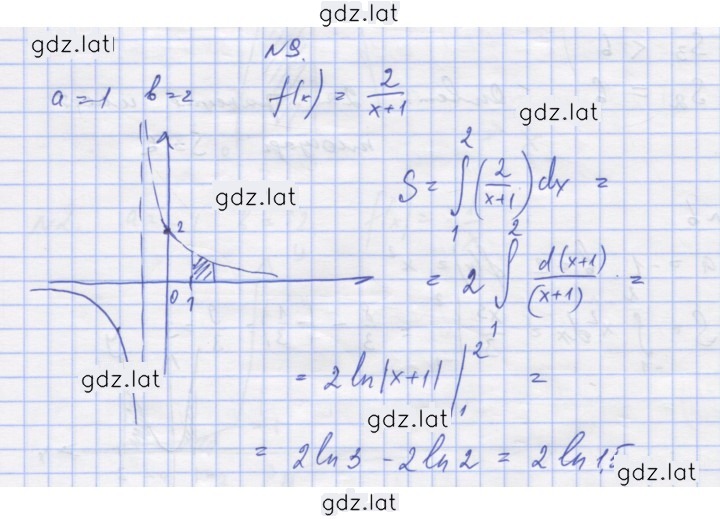 gdz.lat
gdz.lat
№9.
a = 1 b = 2 f(x) = 2/(x+1)
gdz.lat
gdz.lat
S = ∫₁² (2/(x+1)) dx =
2
0 1
= 2 ∫₁² d(x+1)/(x+1) =
gdz.lat
= 2 ln|x+1| |₁² =
gdz.lat
= 2 ln 3 - 2 ln 2 = 2 ln 1,5
gdz.lat
gdz.lat